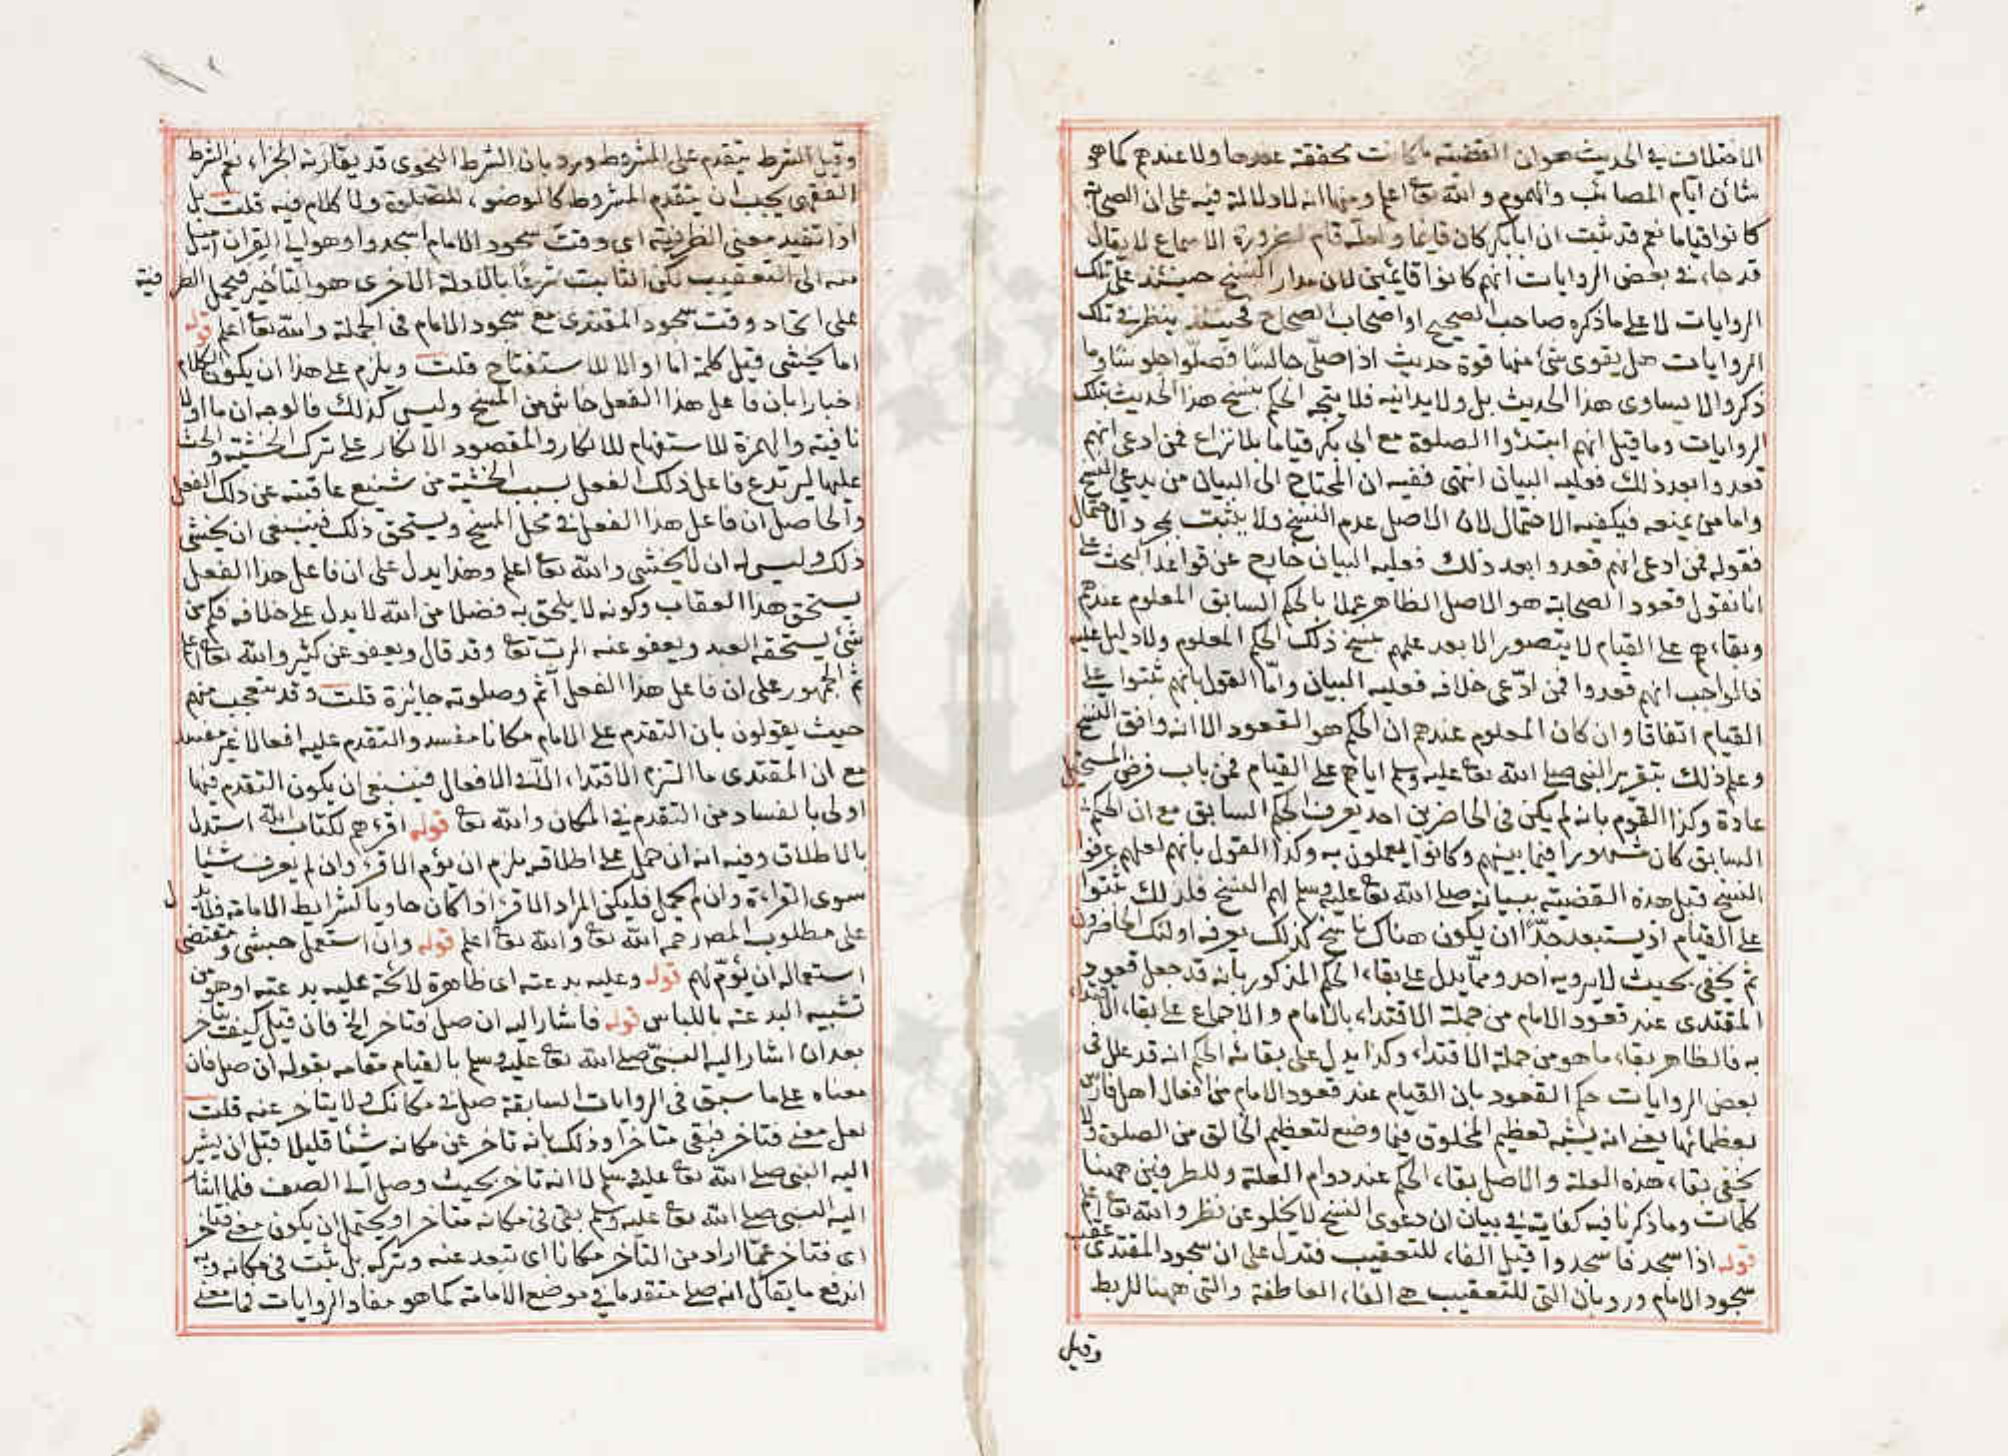 الاختلاف في الحديث هو ان القضية ما كانت محققة عندها ولا عندهم كما هو
شان ايام المصائب والهموم والله تعا اعلم ومنها انه لا دلالة فيه على ان الصحابة
كانوا قياما نعم قد ثبت ان ابا بكر كان قائما ولعله قام لضرورة الاسماع لا يقال
قد جاء في بعض الروايات انهم كانوا قائمين لان مدار النسخ حينئذ على تلك
الروايات لا على ما ذكره صاحب الصحيح او اصحاب الصحاح فحينئذ ينظر في تلك
الروايات هل يقوى شئ منها قوة حديث اذا صلى جالسا فصلوا جلوسا وما
ذكروا لا يساوى هذا الحديث بل ولا يدانيه فلا يتجه الحكم بنسخ هذا الحديث بتلك
الروايات وما قيل انهم ابتدؤا الصلوة مع ابى بكر قياما بلا نزاع فمن ادعى انهم
قعدوا بعد ذلك فعليه البيان انتهى ففيه ان المحتاج الى البيان من يدعى النسخ
واما من يمنعه فيكفيه الاحتمال لان الاصل عدم النسخ ولا يثبت بمجرد الاحتمال
فقوله فمن ادعى انهم قعدوا بعد ذلك فعليه البيان خارج عن قواعد البحث على
انا نقول قعود الصحابة هو الاصل الظاهر عملا بالحكم السابق المعلوم عندهم
وبقاءهم على القيام لا يتصور الا بعد علمهم بنسخ ذلك الحكم المعلوم ولا دليل عليه
فالواجب انهم قعدوا فمن ادّعى خلافه فعليه البيان وامّا القول بانهم ثبتوا على
القيام اتفاقا وان كان المعلوم عندهم ان الحكم هو القعود الا انه وافق النسخ
وعلم ذلك بتقرير النبى صلى الله تعا عليه وسلم اياهم على القيام فمن باب فرض المستحيل
عادة وكذا القوم بانه لم يكن في الحاضرين احد يعرف الحكم السابق مع ان الحكم
السابق كان مشهورا فيما بينهم وكانوا يعملون به وكذا القول بانهم لعلهم عرفوا
النسخ قبل هذه القضية ببيانه صلى الله تعا عليه وسلم لهم النسخ فلذلك ثبتوا
على القيام اذ يستبعد جدّا ان يكون هناك ناسخ كذلك يعرفه اولئك الحاضرون
ثم يخفى بحيث لا يرويه احد وممّا يدل على بقاء الحكم المذكور بانه قد جعل قعود
المقتدى عند قعود الامام من جملة الاقتداء بالامام والاجماع على بقاء الاقتداء
به فالظاهر بقاء ما هو من جملة الاقتداء وكذا يدل على بقائه الحكم انه قد علل فى
بعض الروايات حكم القعود بان القيام عند قعود الامام من افعال اهل فارس
بعظمائها يعني انه يشبه تعظيم المخلوق فيما وضع لتعظيم الخالق من الصلوة ولا
يخفى بقاء هذه العلة والاصل بقاء الحكم عند دوام العلة وللطرفين ههنا
كلمات وما ذكرنا فيه كفاية في بيان ان دعوى النسخ لا يخلو عن نظر والله تعا اعلم
قوله اذا سجد فاسجدوا قيل الفاء للتعقيب فتدل على ان سجود المقتدى عقب
سجود الامام ورد بان التى للتعقيب هى الفاء العاطفة والتى ههنا للربط
وقيل
وقيل الشرط يتقدم على المشروط ورد بان الشرط النحوى قد يقارنه الجزاء نعم الشرط
الفقهى يجب ان يتقدم المشروط كالوضوء للصلوة ولا كلام فيه قلت بل
اذا تفيد معنى الظرفية اى وقت سجود الامام اسجدوا وهو الى القران اميل
منه الى التعقيب لكن الثابت شرعا بالادلة الاخرى هو التأخير فيحمل الظرفية
على اتحاد وقت سجود المقتدى مع سجود الامام فى الجملة والله تعا اعلم قوله
اما يخشى قيل كلمة اما اوالا للاستفتاح قلت ويلزم على هذا ان يكون الكلام
اخبارا بان فاعل هذا الفعل خاش من المسخ وليس كذلك فالوجه ان ما اولا
نافية والهمزة للاستفهام للانكار والمقصود الانكار على ترك الخشية والحث
عليها ليرتدع فاعل ذلك الفعل بسبب الخشية من شنيع عاقبته عن ذلك الفعل
والحاصل ان فاعل هذا الفعل في محل المسخ ويستحق ذلك فينبغى ان يخشى
ذلك وليس له ان لا يخشى والله تعا اعلم وهذا يدل على ان فاعل هذا الفعل
يستحق هذا العقاب وكونه لا يلحق به فضلا من الله لا يدل على خلافه فكم من
شئ يستحقه العبد ويعفو عنه الرب تعا وقد قال ويعفو عن كثير والله تعا اعلم
ثم الجمهور على ان فاعل هذا الفعل آثم وصلوته جائزة قلت وقد يتعجب منهم
حيث يقولون بان التقدم على الامام مكانا مفسد والتقدم عليه افعالا غير مفسد
مع ان المقتدى ما التزم الاقتداء الا في الافعال فينبغى ان يكون التقدم فيها
اولى بالفساد من التقدم في المكان والله تعا قوله اقرءهم لكتاب الله استدل
بالاطلاق وفيه انه ان حمل على اطلاقه يلزم ان يؤم الاقرء وان لم يعرف شيئا
سوى القراءة وان لم يحمل فليكن المراد الاقرء اذا كان حاويا لشرايط الامامة فلا يدل
على مطلوب المصـ رحمه الله تعا والله تعا اعلم قوله وان استعمل حبشى ومقتضى
استعماله ان يؤم لهم قوله وعليه بدعته اى ظاهرة لائحة عليه بدعته او هو من
تشبيه البدعة باللباس قوله فاشار اليه ان صل فتاخر الخ فان قيل كيف تاخر
بعد ان اشار اليه النبىّ صلى الله تعا عليه وسلم بالقيام مقامه بقوله ان صل فان
معناه على ما سبق فى الروايات السابقة صل فى مكانك ولا يتاخر عنه قلت
لعل معنى فتاخر فبقى متاخرا وذلك بانه تاخر عن مكانه شيئا قليلا قبل ان يشير
اليه النبى صلى الله تعا عليه وسلم لا انه تاخر بحيث وصل الى الصف فلما اشار
اليه النبى صلى الله تعا عليه وسلم بقى فى مكانه متاخرا ويحتمل ان يكون معنى فتاخر
اى فتاخر عمّا اراد من التأخر مكانا اى تبعد عنه وتركه بل ثبت فى مكانه وبه
اندفع ما يقال انه صلى متقدما في موضع الامامة كما هو مفاد الروايات فما معنى